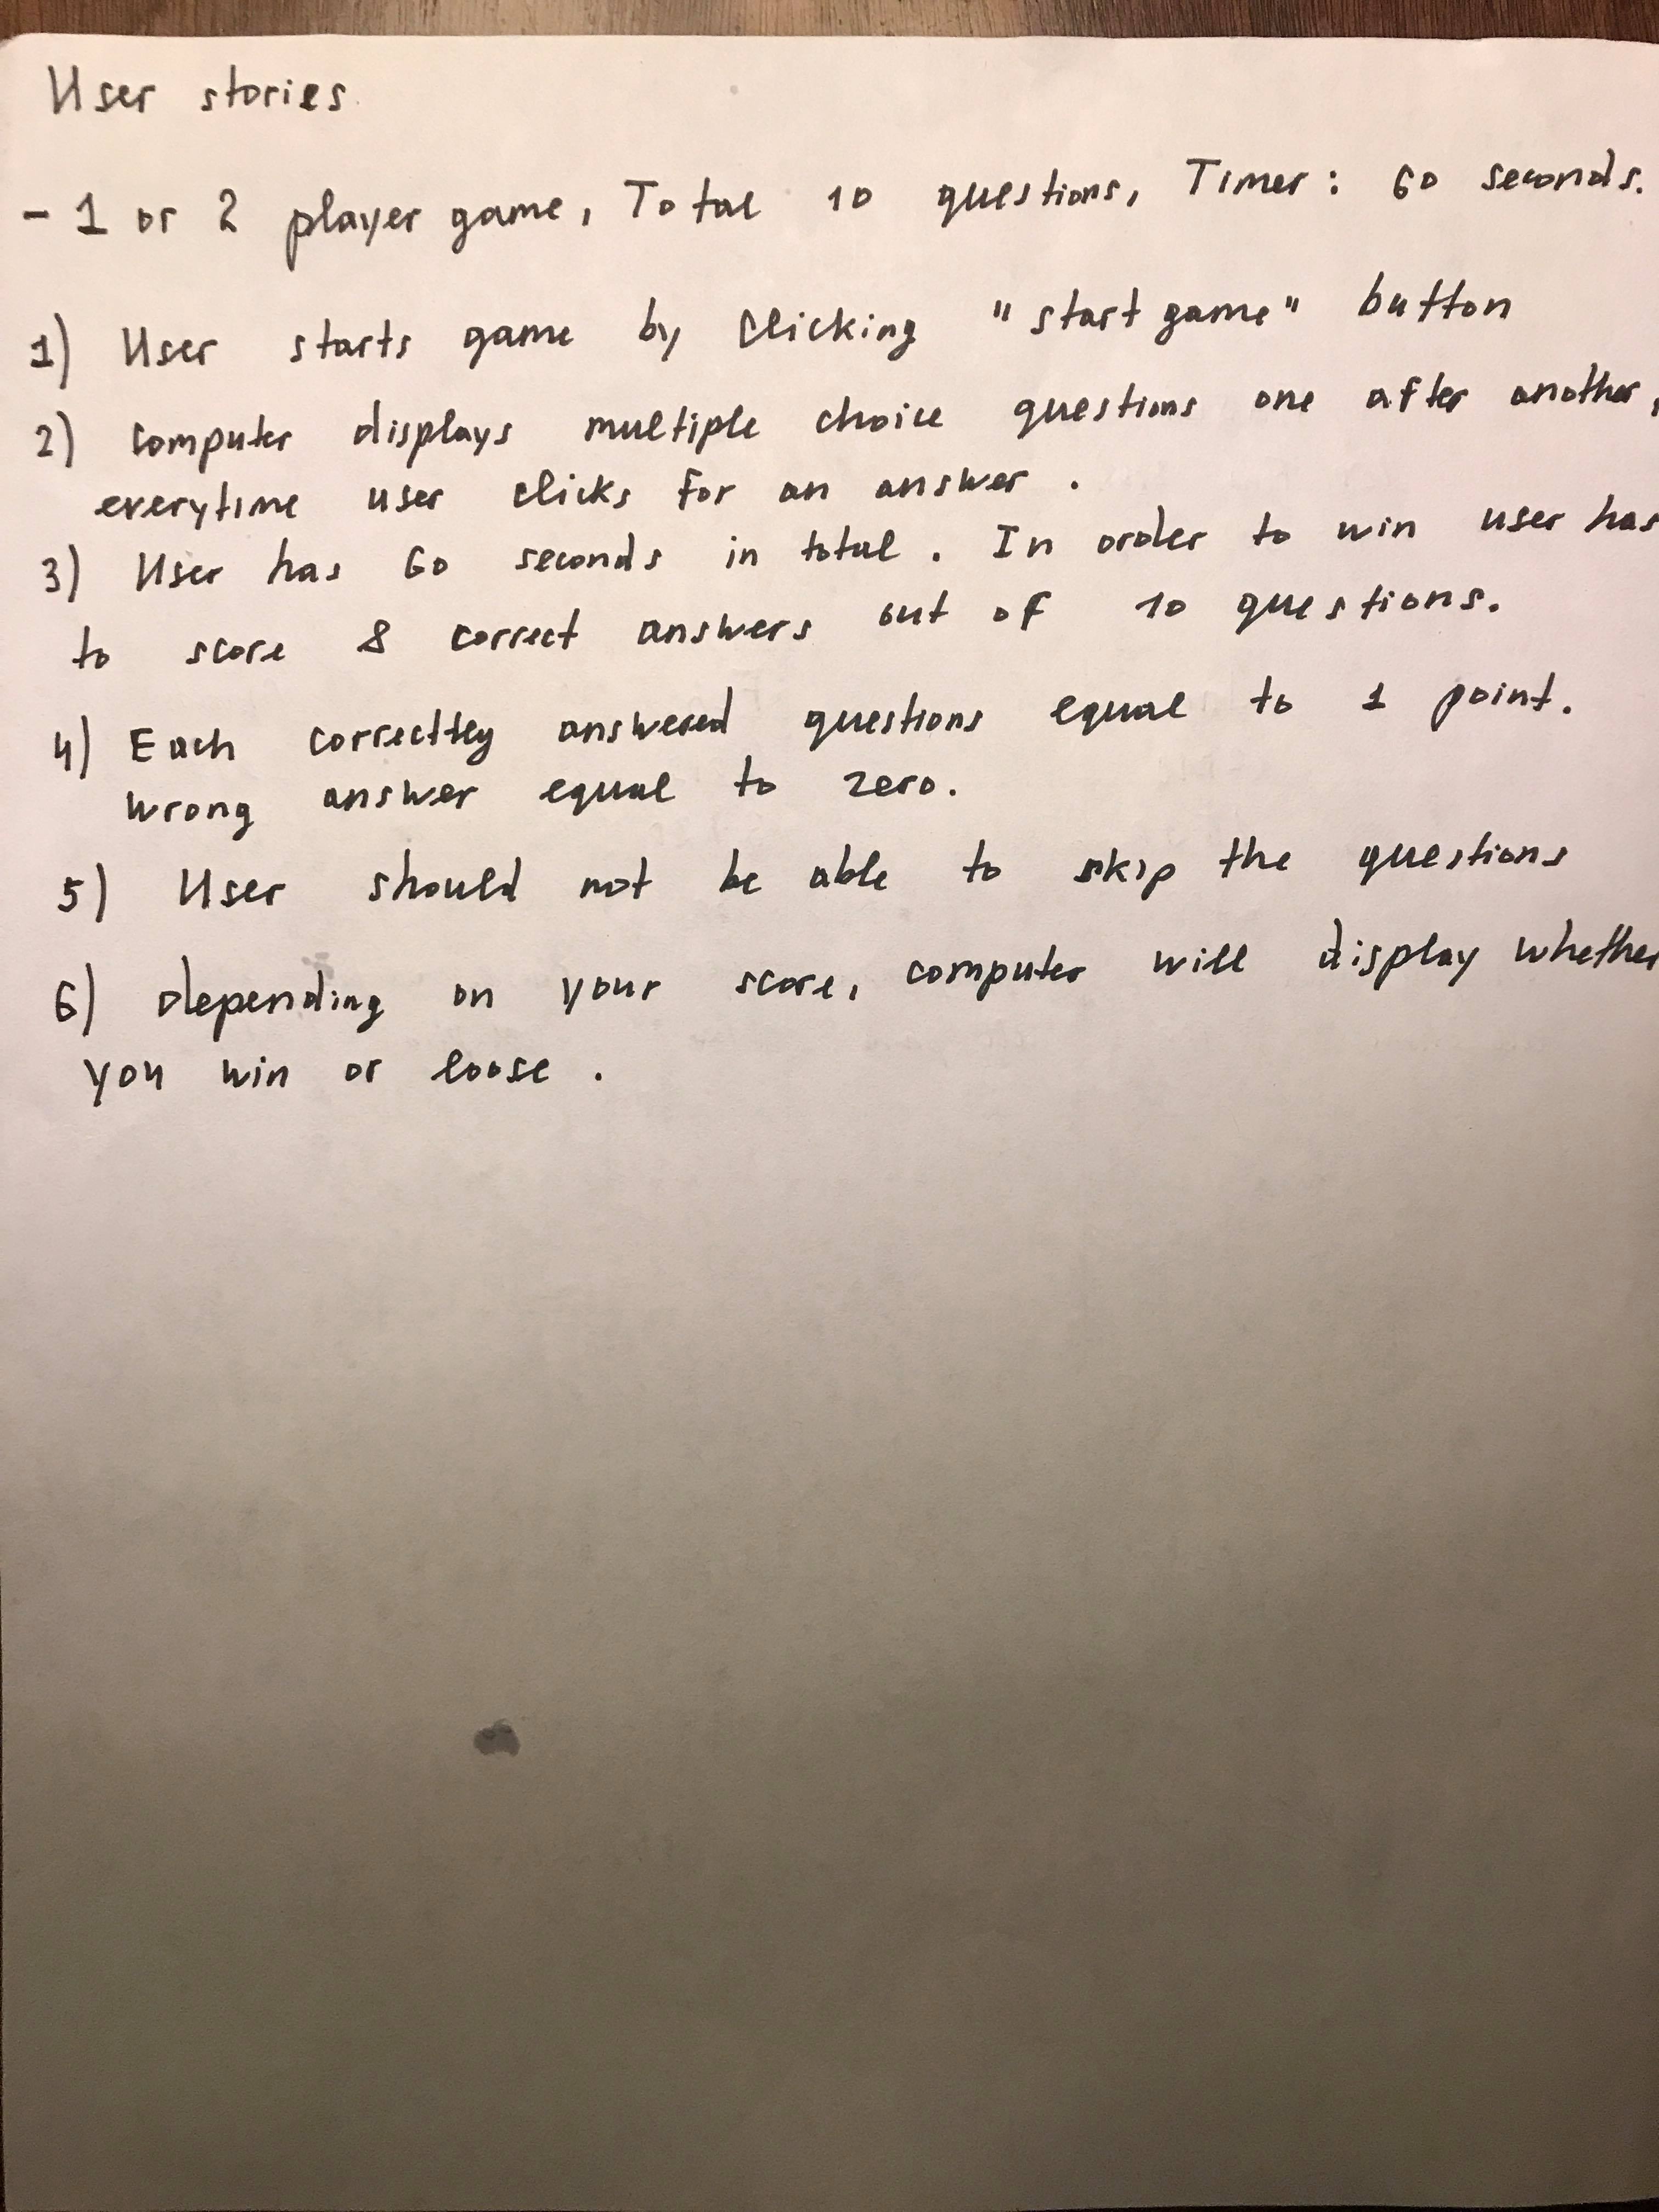 User stories.
- 1 or 2 player game, Total 10 questions, Timer: 60 seconds.
1) User starts game by clicking "start game" button
2) computer displays multiple choice questions one after another,
everytime user clicks for an answer.
3) User has 60 seconds in total. In order to win user has
to score 8 correct answers out of 10 questions.
4) Each correcttly answered questions equal to 1 point.
wrong answer equal to zero.
5) User should not be able to skip the questions
6) depending on your score, computer will display whether
you win or loose.